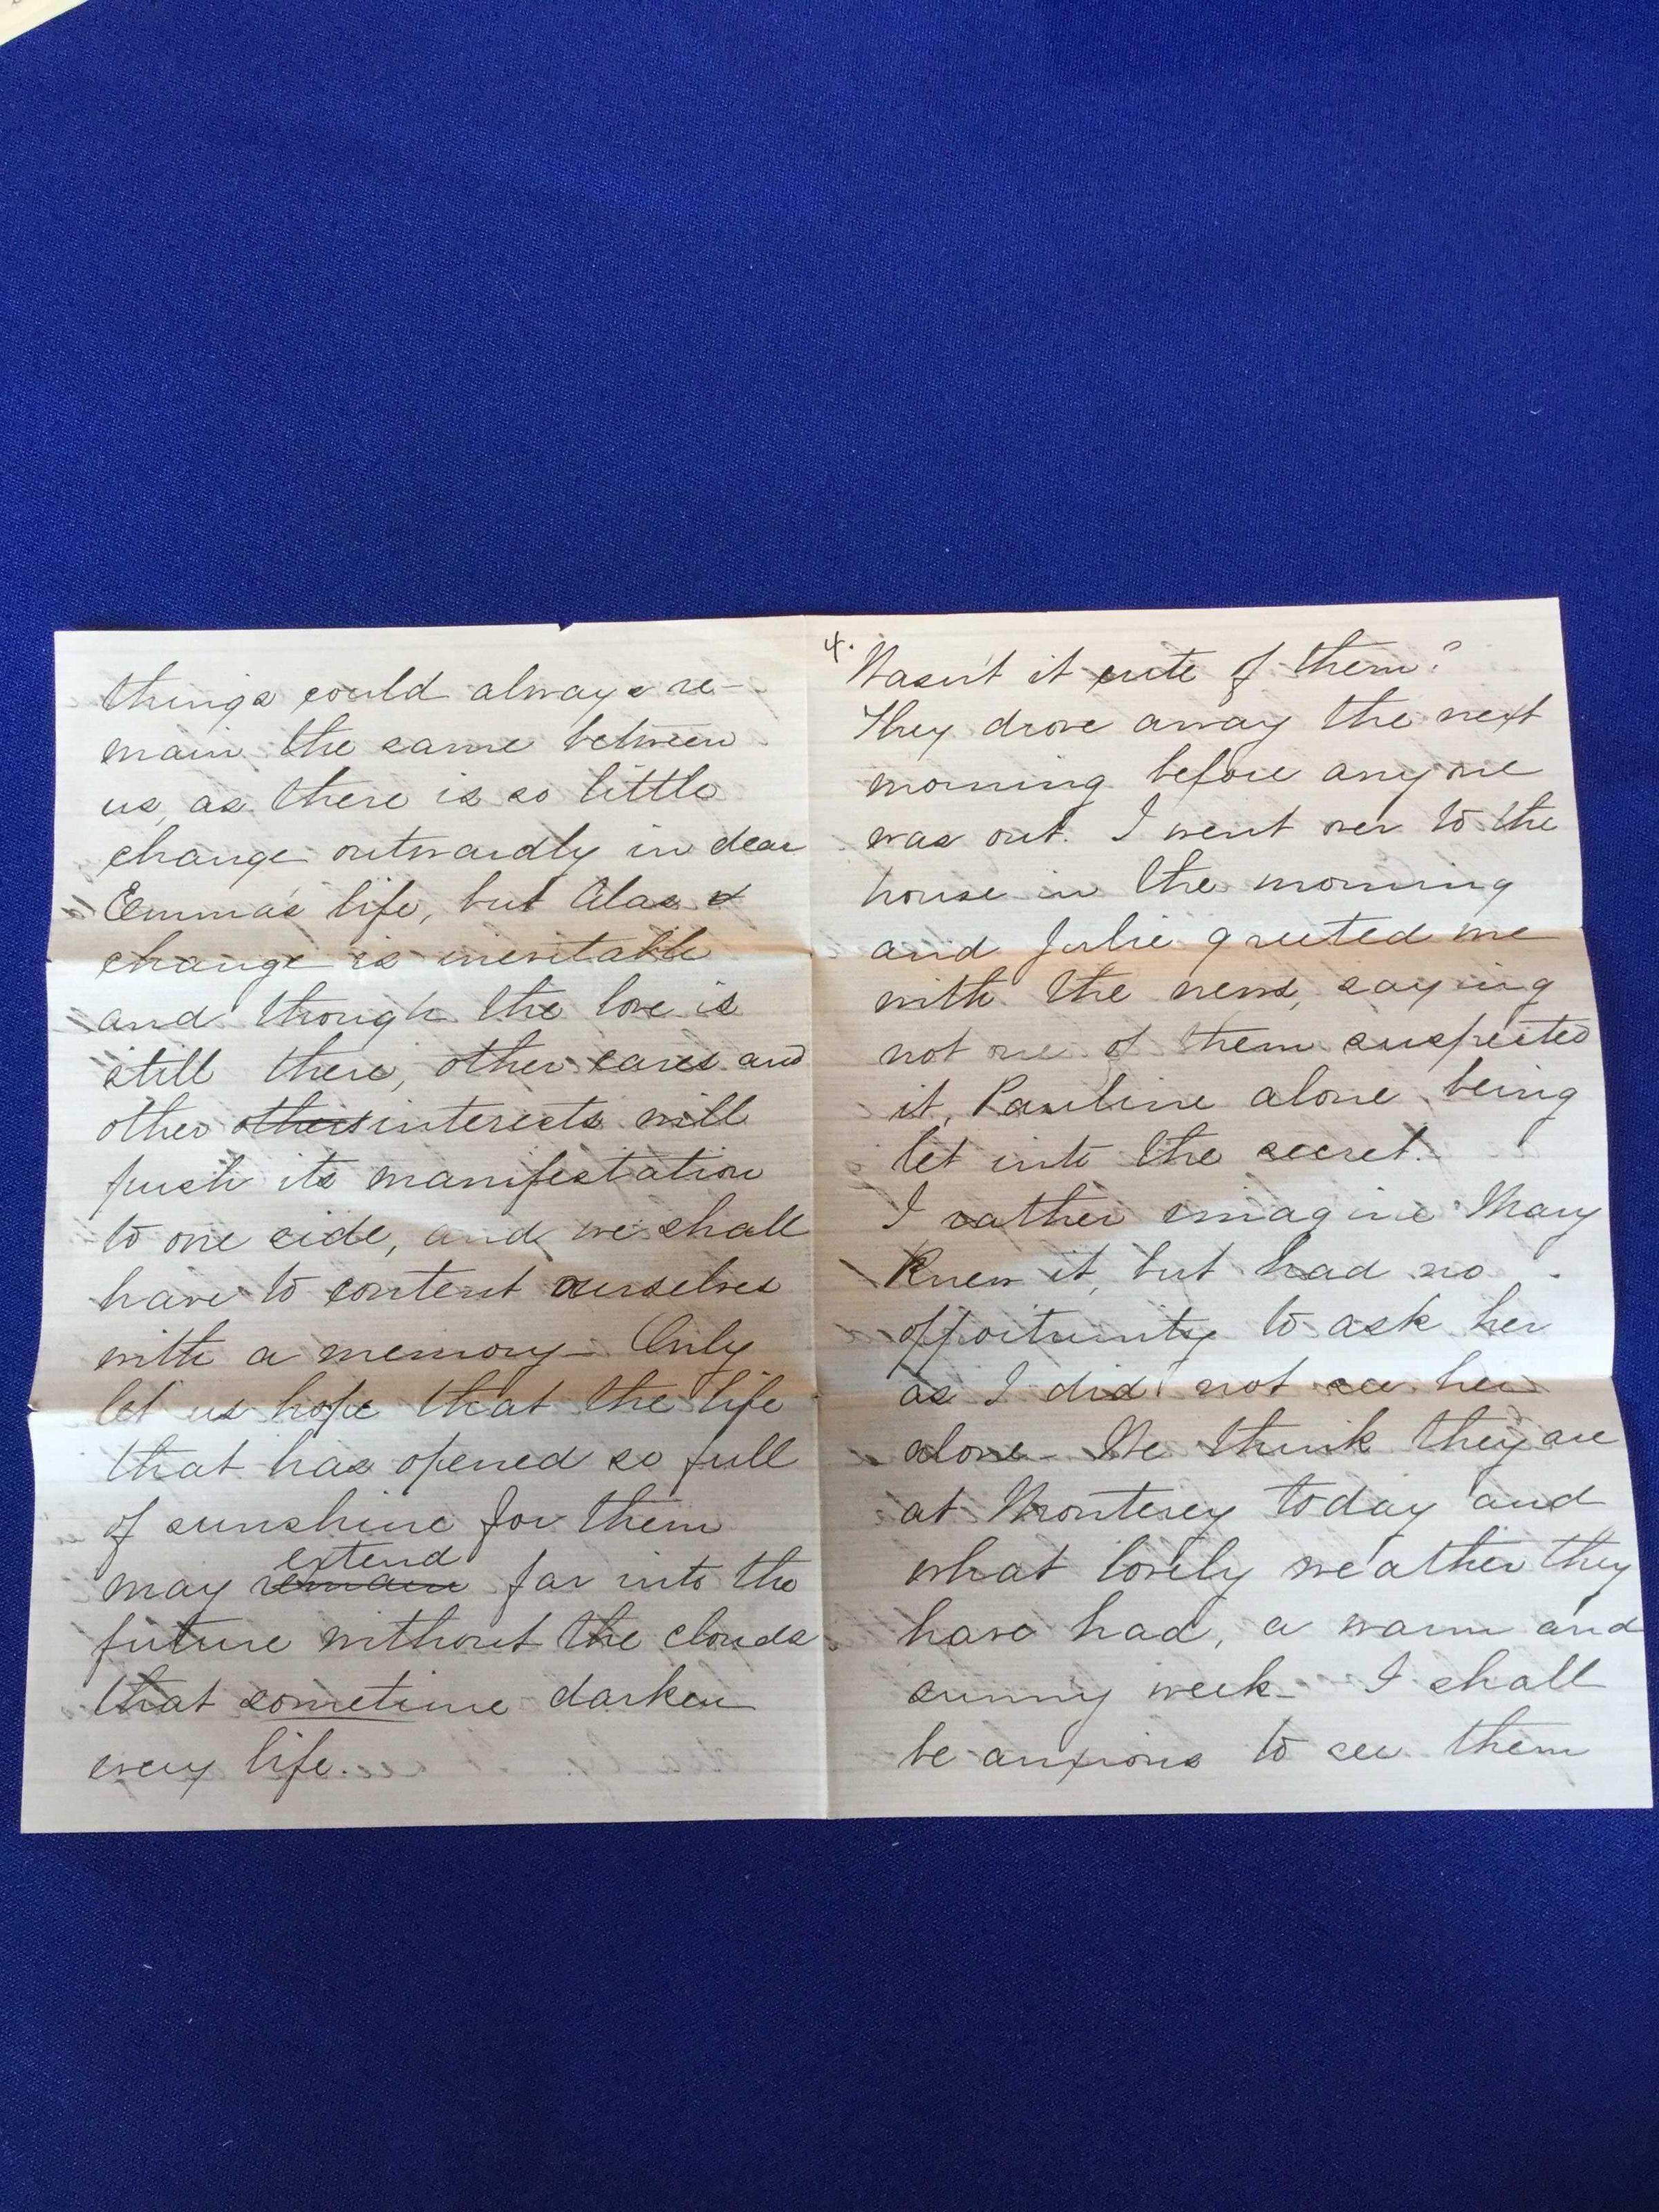 things could always re-
main the same between
us, as there is so little
change outwardly in dear
Emma's life, but Alas
change is inevitable
and though the love is
still there, other cares and
other others interests will
push its manifestation
to one side, and we shall
have to content ourselves
with a memory - Only
let us hope that the life
that has opened so full
of sunshine for them
extend
may remain far into the
future without the clouds
that sometime darken
every life.
4.
Wasn't it cute of them?
They drove away the next
morning before anyone
was out. I went over to the
house in the morning
and Julie greeted me
with the news, saying
not one of them suspected
it, Pauline alone being
let into the secret.
I rather imagine Mary
knew it, but had no
opportunity to ask her
as I did not see her
alone - We think they are
at Monterey today and
what lovely weather they
have had, a warm and
sunny week - I shall
be anxious to see them